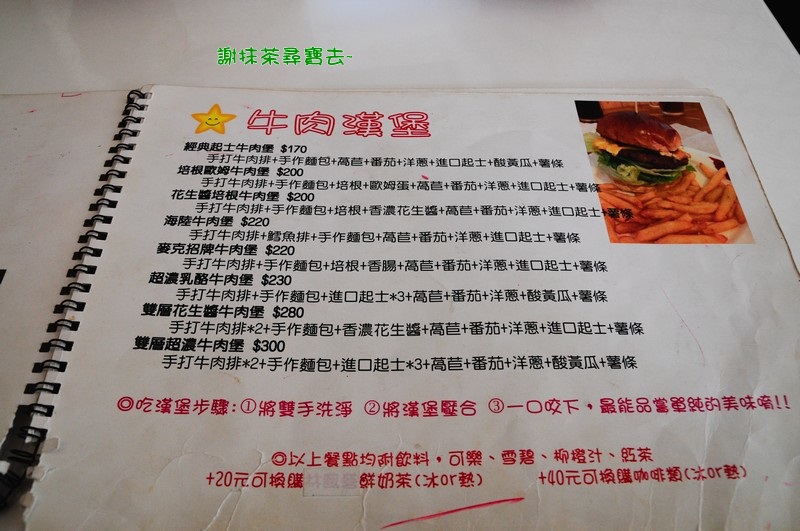 謝抹茶尋寶去~
牛肉漢堡
經典起士牛肉堡 $170
手打牛肉排+手作麵包+萵苣+番茄+洋蔥+進口起士+酸黃瓜+薯條
培根歐姆牛肉堡 $200
手打牛肉排+手作麵包+培根+歐姆蛋+萵苣+番茄+洋蔥+進口起士+薯條
花生醬培根牛肉堡 $200
手打牛肉排+手作麵包+培根+香濃花生醬+萵苣+番茄+洋蔥+進口起士+薯條
海陸牛肉堡 $220
手打牛肉排+鱈魚排+手作麵包+萵苣+番茄+洋蔥+進口起士+薯條
麥克招牌牛肉堡 $220
手打牛肉排+手作麵包+培根+香腸+萵苣+番茄+洋蔥+進口起士+薯條
超濃乳酪牛肉堡 $230
手打牛肉排+手作麵包+進口起士*3+萵苣+番茄+洋蔥+酸黃瓜+薯條
雙層花生醬牛肉堡 $280
手打牛肉排*2+手作麵包+香濃花生醬+萵苣+番茄+洋蔥+進口起士+薯條
雙層超濃牛肉堡 $300
手打牛肉排*2+手作麵包+進口起士*3+萵苣+番茄+洋蔥+酸黃瓜+薯條
◎吃漢堡步驟:①將雙手洗淨 ②將漢堡壓合 ③一口咬下，最能品嘗單純的美味唷!!
◎以上餐點均附飲料，可樂、雪碧、柳橙汁、紅茶
+20元可換購鮮奶茶(冰or熱) +40元可換購咖啡類(冰or熱)